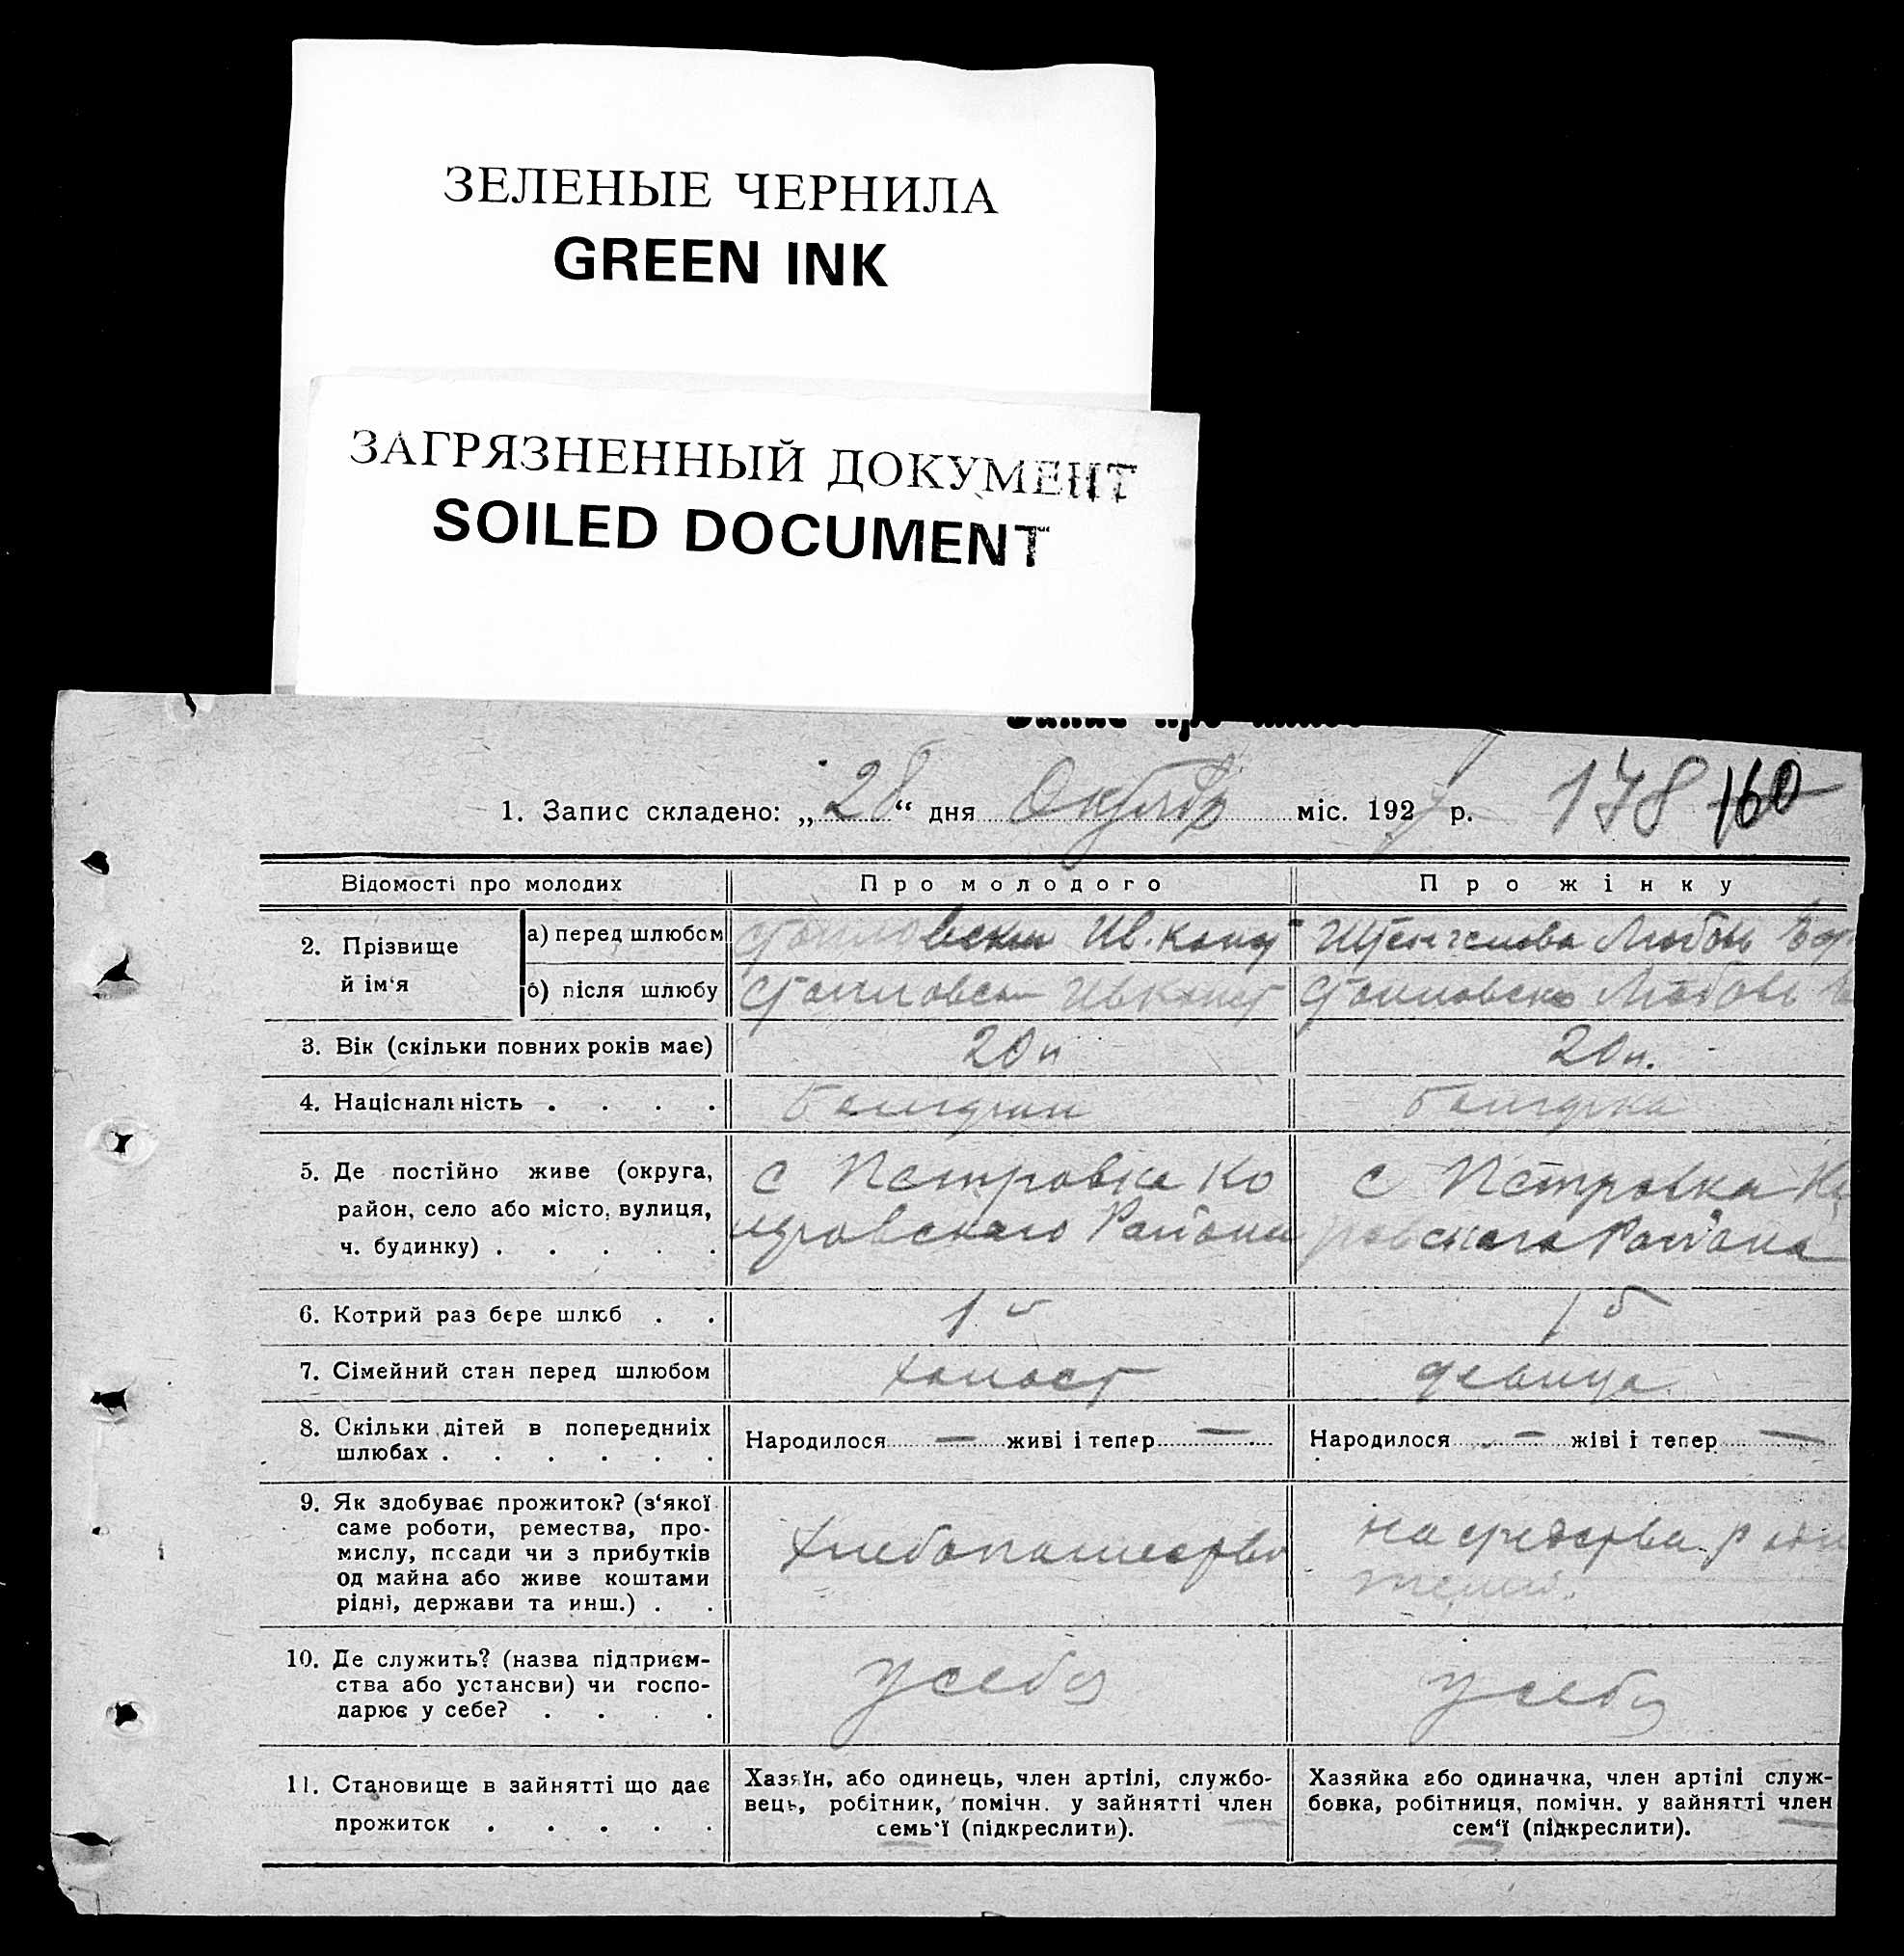 ЗЕЛЕНЫЕ ЧЕРНИЛА
GREEN INK
ЗАГРЯЗНЕННЫЙ ДОКУМЕНТ
SOILED DOCUMENT
1. Запис складено: „28“ дня Октябр міс. 1927 р. 178 160
Відомості про молодих
Про молодого
Про жінку
2. Прізвище й ім‘я
а) перед шлюбом
Ив. Конст
Любовь
б) після шлюбу
Любовь
3. Вік (скільки повних років має)
20 л
20 л.
4. Національність . . . .
Болгарин
болгарка
5. Де постійно живе (округа,
район, село або місто, вулиця,
ч. будинку) . . . . .
с Петровка
Района
с Петровка
ровского Района
6. Котрий раз бере шлюб . .
1й
1й
7. Сімейний стан перед шлюбом
холост
девица
8. Скільки дітей в попередниіх
шлюбах . . . . . .
Народилося — живі і тепер —
Народилося — жіві і тепер —
9. Як здобуває прожиток? (з‘якої
саме роботи, ремества, про-
мислу, посади чи з прибутків
од майна або живе коштами
рідні, держави та инш.) . .
хлебопашество
на средства роди
телей.
10. Де служить? (назва підприєм-
ства або устансви) чи госпо-
дарює у себе? . . . .
у себя
у себя
11. Становище в зайнятті що дає
прожиток . . . . .
Хазяїн, або одинець, член артілі, службо-
вець, робітник, помічн. у зайнятті член
семь‘ї (підкреслити).
Хазяйка або одиначка, член артілі служ-
бовка, робітниця, помічн. у зайнятті член
сем‘ї (підкреслити).